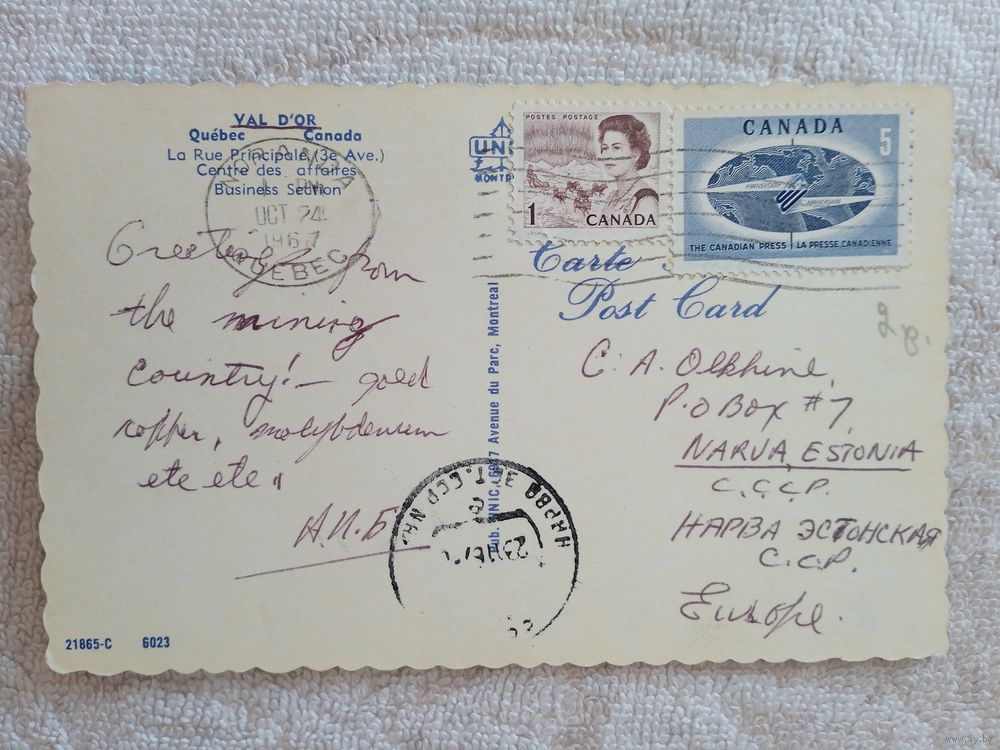 VAL D'OR
Québec Canada
La Rue Principale (3e Ave.)
Centre des affaires
Business Section
OCT 24
1967
QUEBEC
Greetings from
the mining
country! — gold
copper, molybdenum
etc etc
А.П.Б
21865-C 6023
6917 Avenue du Parc, Montreal
UN
MONTR
POSTES POSTAGE
1 CANADA
CANADA 5
ANNIVERSARY
ANNIVERSAIRE
THE CANADIAN PRESS LA PRESSE CANADIENNE
Carte
Post Card
C. A. Olkhine,
P.O Box #7,
NARVA, ESTONIA
С.С.С.Р.
НАРВА ЭСТОНСКАЯ
С.С.Р.
Europe.
НАРВА ЭСТ. ССР
www.ay.by